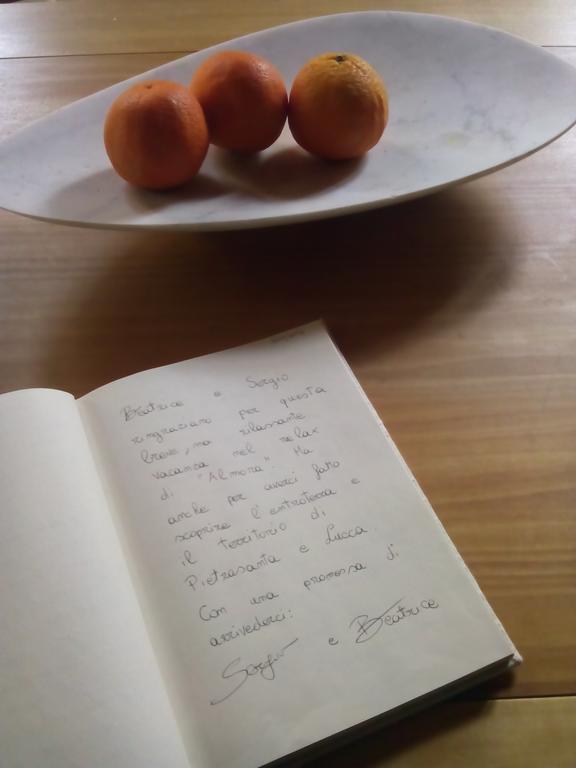 Beatrice e Sergio
ringraziano per questa
breve, ma rilassante
vacanza nel relax
di "Almora". Ma
anche per averci fatto
scoprire l'entroterra e
il territorio di
Pietrasanta e Lucca.
Con una promessa di
arrivederci:
Sergio e Beatrice